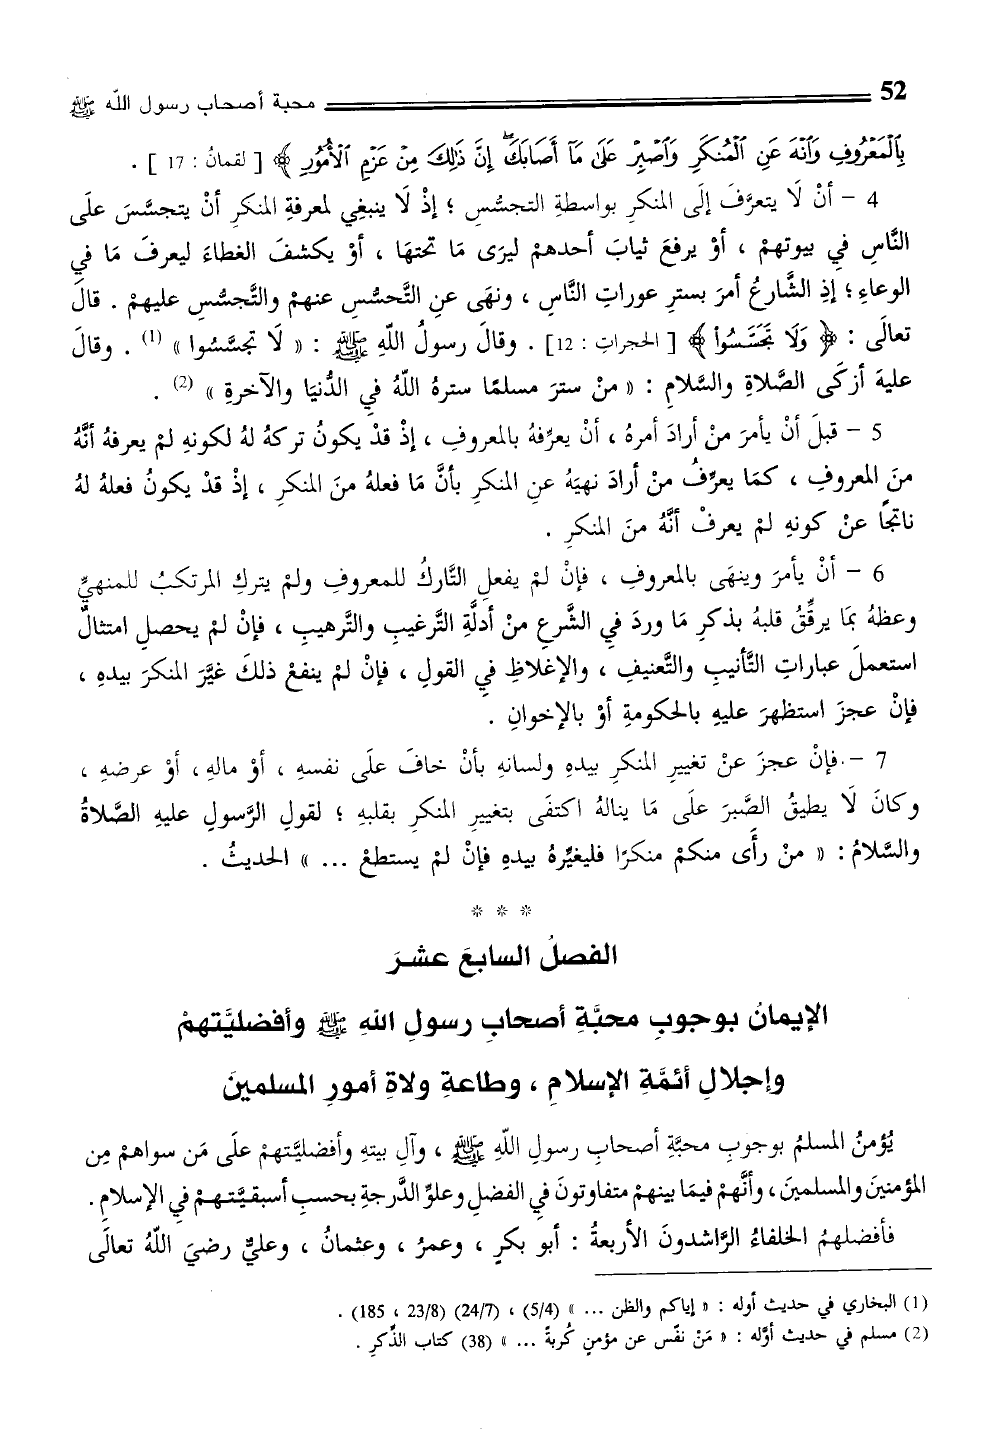 52 محبة أصحاب رسول الله ﷺ
بِٱلْمَعْرُوفِ وَٱنْهَ عَنِ ٱلْمُنكَرِ وَٱصْبِرْ عَلَىٰ مَآ أَصَابَكَ ۖ إِنَّ ذَٰلِكَ مِنْ عَزْمِ ٱلْأُمُورِ ﴾ [ لقمانُ : 17 ] .
4 – أنْ لَا يتعرَّفَ إلَى المنكرِ بواسطةِ التجسُّسِ ؛ إذْ لَا ينبغِي لمعرفةِ المنكرِ أنْ يتجسَّسَ علَى
النَّاسِ فِي بيوتهمْ ، أوْ يرفعَ ثيابَ أحدهمْ ليرَى مَا تحتهَا ، أوْ يكشفَ الغطاءَ ليعرفَ مَا فِي
الوعاءِ ؛ إذِ الشَّارعُ أمرَ بسترِ عوراتِ النَّاسِ ، ونهَى عنِ التَّحسُّسِ عنهمْ والتَّجسُّسِ عليهمْ . قالَ
تعالَى : ﴿ وَلَا تَجَسَّسُوا۟ ﴾ [ الحجراتِ : 12] . وقالَ رسولُ اللّهِ ﷺ : « لَا تجسَّسُوا » (1) . وقالَ
عليهَ أزكَى الصَّلاةِ والسَّلامِ : « منْ سترَ مسلمًا سترهُ اللّهُ فِي الدُّنيَا والآخرةِ » (2) .
5 – قبلَ أنْ يأمرَ منْ أرادَ أمرهُ ، أنْ يعرِّفهُ بالمعروفِ ، إذْ قدْ يكونُ تركهُ لهُ لكونهِ لمْ يعرفهُ أنَّهُ
منَ المعروفِ ، كمَا يعرِّفُ منْ أرادَ نهيَهُ عنِ المنكرِ بأنَّ مَا فعلهُ منَ المنكرِ ، إذْ قدْ يكونُ فعلهُ لهُ
ناتجًا عنْ كونهِ لمْ يعرفْ أنَّهُ منَ المنكرِ .
6 – أنْ يأمرَ وينهَى بالمعروفِ ، فإنْ لمْ يفعلِ التَّاركُ للمعروفِ ولمْ يتركِ المرتكبُ للمنهيِّ
وعظهُ بمَا يرقِّقُ قلبهُ بذكرِ مَا وردَ فِي الشَّرعِ منْ أدلَّةِ التَّرغيبِ والتَّرهيبِ ، فإنْ لمْ يحصلِ امتثالٌ
استعملَ عباراتِ التَّأنيبِ والتَّعنيفِ ، والإغلاظِ فِي القولِ ، فإنْ لمْ ينفعْ ذلكَ غيَّرَ المنكرَ بيدهِ ،
فإنْ عجزَ استظهرَ عليهِ بالحكومةِ أوْ بالإخوانِ .
7 – .فإنْ عجزَ عنْ تغييرِ المنكرِ بيدهِ ولسانهِ بأنْ خافَ علَى نفسهِ ، أوْ مالهِ ، أوْ عرضهِ ،
وكانَ لَا يطيقُ الصَّبرَ علَى مَا ينالهُ اكتفَى بتغييرِ المنكرِ بقلبهِ ؛ لقولِ الرَّسولِ عليهِ الصَّلاةُ
والسَّلامُ : « منْ رأَى منكمْ منكرًا فليغيِّرهُ بيدهِ فإنْ لمْ يستطعْ ... » الحديثُ .
* * *
الفصلُ السابعَ عشرَ
الإيمانُ بوجوبِ محبَّةِ أصحابِ رسولِ اللهِ ﷺ وأفضليَّتهمْ
وإجلالِ أئمَّةِ الإسلامِ ، وطاعةِ ولاةِ أمورِ المسلمينَ
يُؤمنُ المسلمُ بوجوبِ محبَّةِ أصحابِ رسولِ اللّهِ ﷺ ، وآلِ بيتهِ وأفضليَّتهمْ علَى مَن سواهمْ مِن
المؤمنينَ والمسلمينَ ، وأنَّهمْ فيمَا بينهمْ متفاوتونَ فِي الفضلِ وعلوِّ الدَّرجةِ بحسبِ أسبقيَّتهمْ فِي الإسلامِ .
فأفضلهمُ الخلفاءُ الرَّاشدونَ الأربعةُ : أبو بكرٍ ، وعمرُ ، وعثمانُ ، وعليٌّ رضيَ اللّهُ تعالَى
(1) البخاري في حديث أوله : « إياكم والظن ... » (5/4) ، (24/7) (23/8 ، 185) .
(2) مسلم في حديث أوَّله : « مَنْ نفّس عن مؤمنٍ كُربةً ... » (38) كتاب الذِّكرِ .